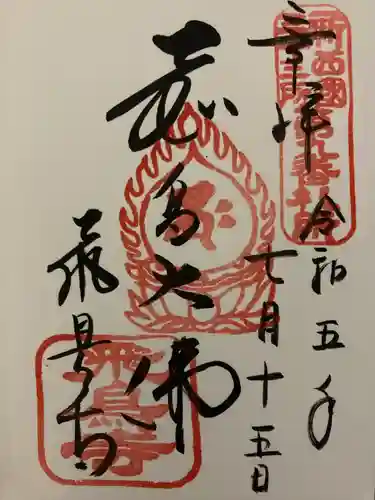 奉拝
令和五年
七月十五日
飛鳥大佛
飛鳥寺
飛鳥寺